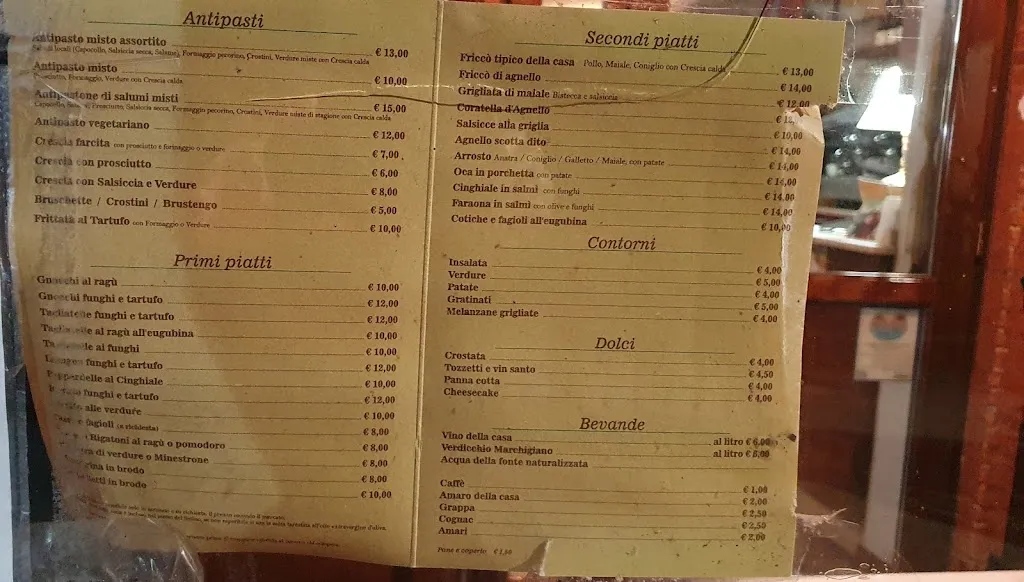 Antipasti
Antipasto misto assortito € 13,00
locali (Capocollo, Salsiccia secca, Salame), Formaggio pecorino, Crostini, Verdure miste con Crescia calda
Antipasto misto € 10,00
Prosciutto, Formaggio, Verdure con Crescia calda
Antipastone di salumi misti € 15,00
Capocollo, Prosciutto, Salsiccia secca, Formaggio pecorino, Crostini, Verdure miste di stagione con Crescia calda
Antipasto vegetariano € 12,00
Crescia farcita con prosciutto e formaggio o verdure € 7,00
Crescia con prosciutto € 6,00
Crescia con Salsiccia e Verdure € 8,00
Bruschette / Crostini / Brustengo € 5,00
Frittata al Tartufo con Formaggio o Verdure € 10,00
Primi piatti
Gnocchi al ragù € 10,00
Gnocchi funghi e tartufo € 12,00
Tagliatelle funghi e tartufo € 12,00
Tagliatelle al ragù all'eugubina € 10,00
ai funghi € 10,00
funghi e tartufo € 12,00
Pappardelle al Cinghiale € 10,00
funghi e tartufo € 12,00
alle verdure € 10,00
e fagioli (a richiesta) € 8,00
Rigatoni al ragù o pomodoro € 8,00
di verdure o Minestrone € 8,00
in brodo € 8,00
in brodo € 10,00
Secondi piatti
Friccò tipico della casa Pollo, Maiale, Coniglio con Crescia calda € 13,00
Friccò di agnello € 14,00
Grigliata di maiale Bistecca e salsiccia € 12,00
Coratella d'Agnello
Salsicce alla griglia € 10,00
Agnello scotta dito € 14,00
Arrosto Anatra / Coniglio / Galletto / Maiale, con patate € 14,00
Oca in porchetta con patate € 14,00
Cinghiale in salmì con funghi € 14,00
Faraona in salmì con olive e funghi € 14,00
Cotiche e fagioli all'eugubina € 10,00
Contorni
Insalata € 4,00
Verdure € 5,00
Patate € 4,00
Gratinati € 5,00
Melanzane grigliate € 4,00
Dolci
Crostata € 4,00
Tozzetti e vin santo € 4,50
Panna cotta € 4,00
Cheesecake € 4,00
Bevande
Vino della casa al litro € 6,00
Verdicchio Marchigiano al litro € 8,00
Acqua della fonte naturalizzata
Caffè € 1,00
Amaro della casa € 2,00
Grappa € 2,50
Cognac € 2,50
Amari € 2,00
Pane e coperto € 1,50